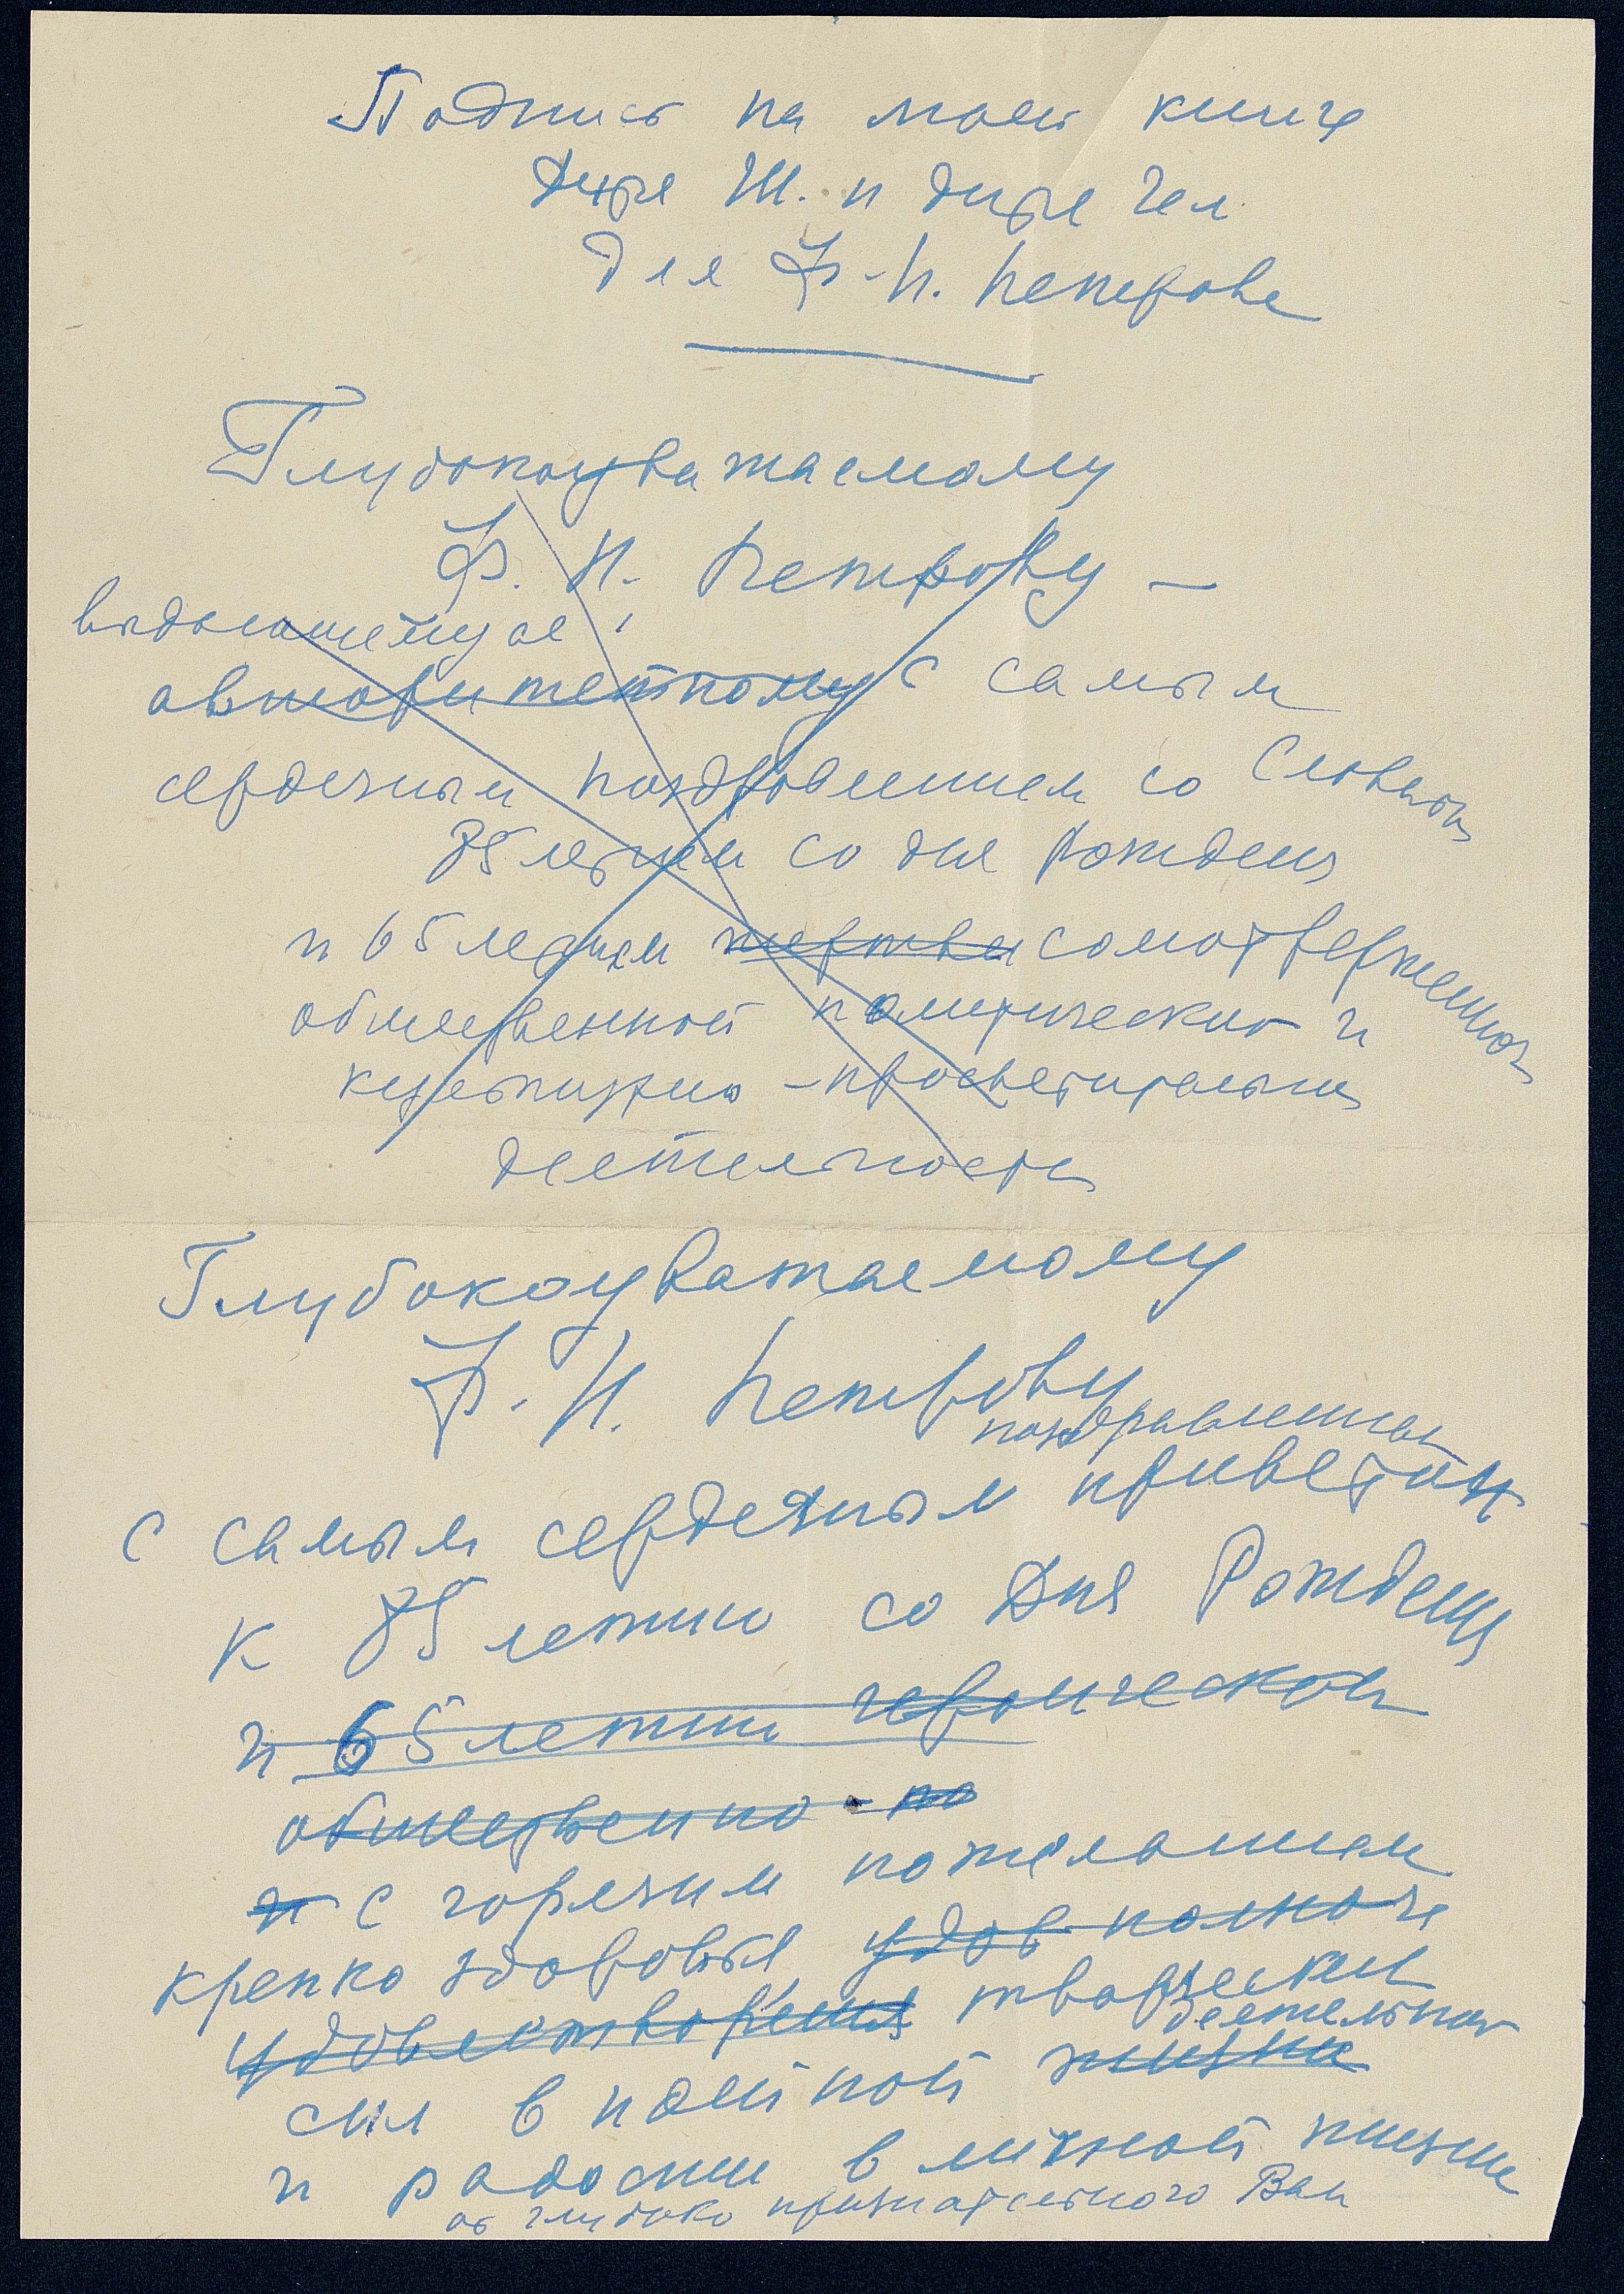 Подпись на моей книге
для Ф. Н. Петрова
Глубокоуважаемому
Ф. Н. Петрову —
выдающемуся
авторитетному с самым
сердечным поздравлением со Славным
85 летием со дня Рождения
и 65 летием жертвен самоотверженной
общественной политической и
культурно-просветительной
деятельности
Глубокоуважаемому
Ф. Н. Петрову
поздравлением
с самым сердечным приветом
к 85 летию со Дня Рождения
и 65 летию героической
общественно - по
и с горячим пожеланием
крепко здоровья удов полного
удовлетворения творческих
деятельной
сил в полной жизни
и радости в личной жизни
от глубоко признательного Вам